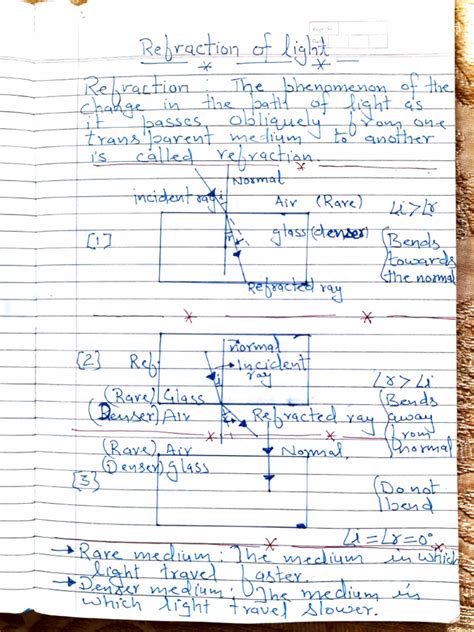 Refraction of light
Refraction : The phenomenon of the
change in the path of light as
it passes obliquely from one
transparent medium to another
is called refraction.
Normal
incident ray i Air (Rare) Li>Lr
[1] r glass (denser) (Bends
towards
the normal
Refracted ray
normal
[2] Ref. Incident
ray Lr>Li
i
(Rare) Glass (Bends
(Denser) Air r Refracted ray away
from
(Rare) Air Normal normal
(Denser) glass
[3] (Do not
bend
Li=Lr=0°
→ Rare medium : The medium in which
light travel faster.
→ Denser medium : The medium in
which light travel slower.